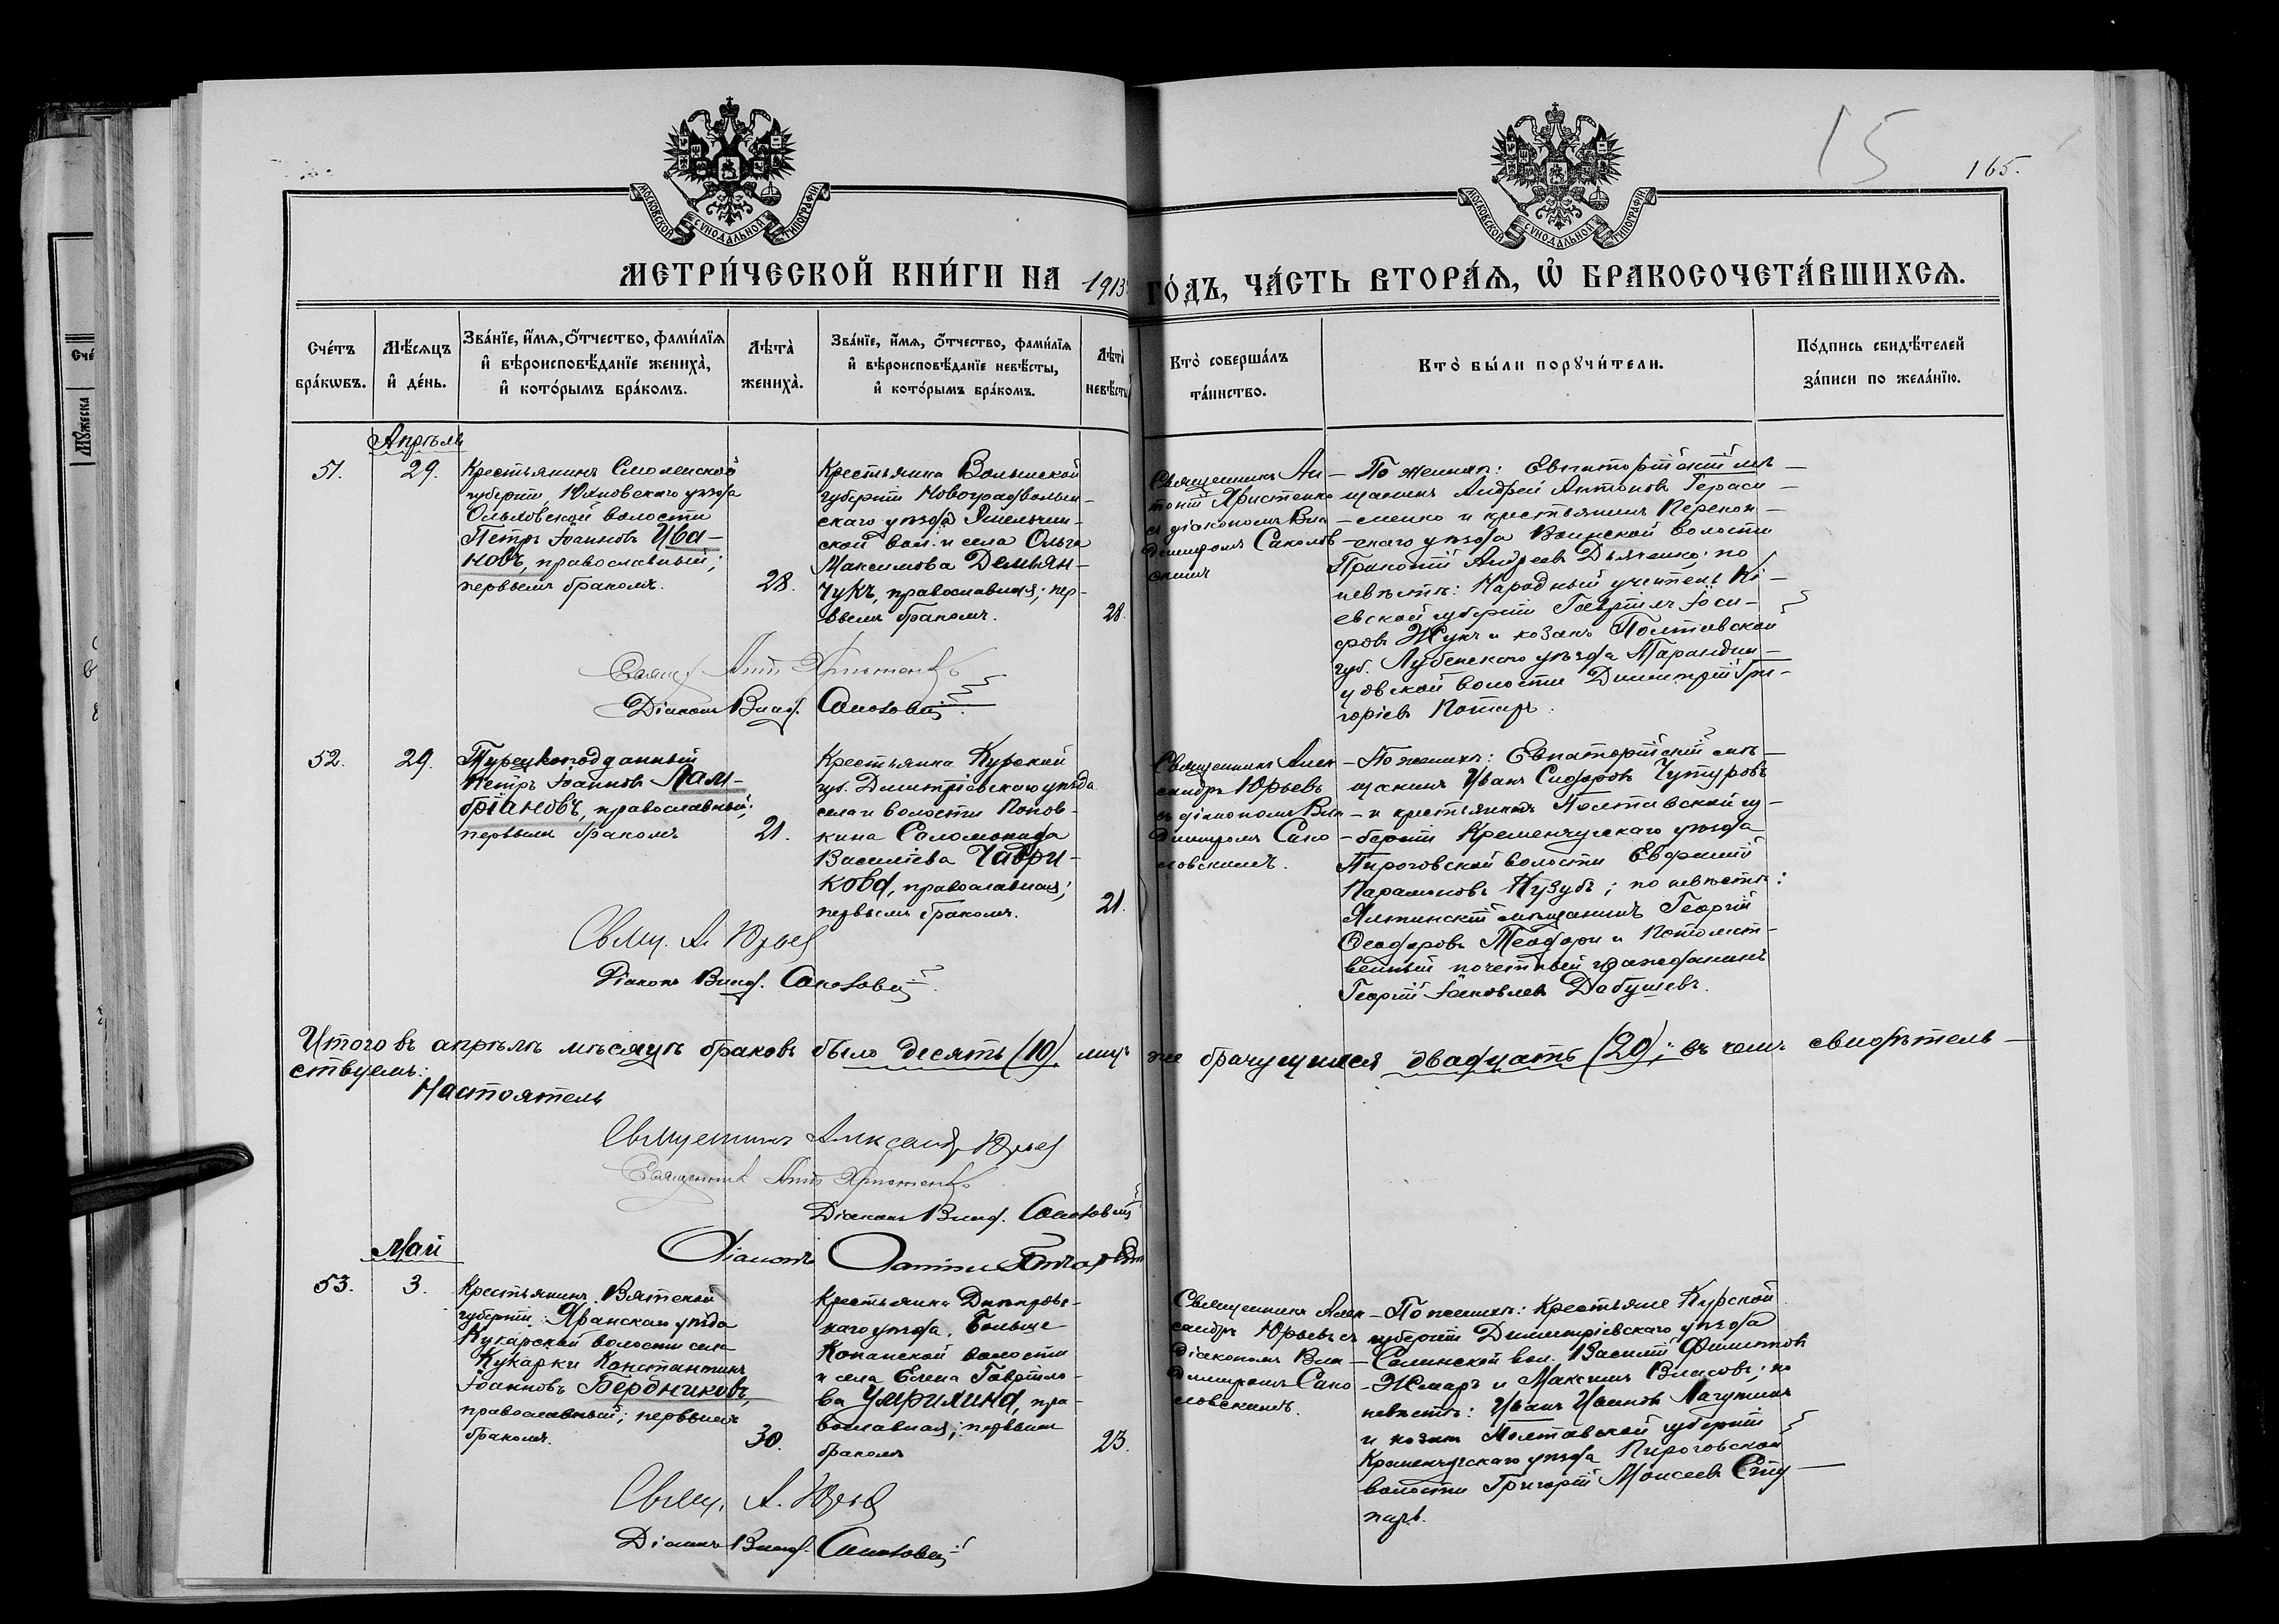 15
165.
МОСКОВСКОЙ СѴНОДАЛЬНОЙ ТИПОГРАФІИ
МОСКОВСКОЙ СѴНОДАЛЬНОЙ ТИПОГРАФІИ
МЕТРИ́ЧЕСКОЙ КНИ́ГИ НА 1913
ГО́ДЪ, ЧА́СТЬ ВТОРА́Ѧ, Ѽ БРАКОСОЧЕТА́ВШИХСѦ.
Счéтъ
брáкѡвъ.
Мѣ́сѧцъ
и҆ де́нь.
Звáнїе, и҆́мѧ, ѻ҆́тчество, фами́лїѧ
и҆ вѣроисповѣ́данїе женихà,
и҆ кото́рымъ брáкомъ.
Лѣтà
женихà.
Звáнїе, и҆́мѧ, ѻ҆́тчество, фами́лїѧ
и҆ вѣроисповѣ́данїе невѣ́сты,
и҆ кото́рымъ брáкомъ.
Лѣтà
невѣ́сты
Кто̀ совершáлъ
тáинство.
Кто̀ бы́ли порꙋчи́тели.
По́дпись свидѣ́телей
зáписи по желáнїю.
Апрѣль
51.
29.
Крестьянинъ Смоленской
губерніи, Юхновскаго уѣзда
Ольховской волости
Петръ Іоанновъ Ива-
новъ, православный;
первымъ бракомъ.
28.
Крестьянка Волынской
губерніи Новоградволын-
скаго уѣзда Эмельчин-
ской вол. и села Ольга
Максимова Демьян-
чукъ, православная; пер-
вымъ бракомъ.
28.
Священникъ Ан-
тоній Христенко
съ діакономъ Вла-
димиромъ Соколов-
скимъ
По женихѣ: Евпаторійскій мѣ-
щанинъ Андрей Антоновъ Гераси-
менко и крестьянинъ Перекоп-
скаго уѣзда Воинской волости
Прокопій Андреевъ Дьяченко; по
невѣстѣ: Народный учитель Кі-
евской губерніи Гавріилъ Іоси-
фовъ Жукъ и козакъ Полтавской
губ. Лубенскаго уѣзда Тарандин-
цовской волости Димитрій Гри-
горіевъ Потиръ.
Свящ. Ант. Христенко
Діаконъ Влад. Соколовскій
52.
29.
Турецкоподданный
Петръ Іоанновъ Лам-
бріановъ, православный;
первымъ бракомъ
21.
Крестьянка Курской
губ. Димитріевскаго уѣзда
села и волости Попов-
кина Соломонида
Василіева Чаври-
кова, православная;
первымъ бракомъ.
21.
Священникъ Алек-
сандръ Юрьевъ
съ діакономъ Вла-
димиромъ Соко-
ловскимъ.
По женихѣ: Евпаторійскій мѣ-
щанинъ Иванъ Сидоровъ Чутуровъ
и крестьянинъ Полтавской гу-
берніи Кременчугскаго уѣзда
Пироговской волости Евфимій
Парамоновъ Кузубъ; по невѣстѣ:
Ялтинскій мѣщанинъ Георгій
Ѳеодоровъ Теодори и Потомст-
венный почетный гражданинъ
Георгій Іаковлевъ Дабушевъ.
Свящ. А. Юрьев
Діаконъ Влад. Соколовскій
Итого въ апрѣлѣ мѣсяцѣ браковъ было десять (10) лицъ же брачущихся двадцать (20); въ чемъ свидѣтель-
ствуемъ:
Настоятель
Священникъ Александръ Юрьев
Священник Ант. Христенко
Діаконъ Влад. Соколовскій
Діаконъ
Май
53.
3.
Крестьянинъ Вятской
губерніи, Яранскаго уѣзда
Кукарской волости села
Кукарки Константинъ
Іоанновъ Бердниковъ,
православный; первымъ
бракомъ.
30.
Крестьянка Днѣпровс-
каго уѣзда, Больше-
Копанской волости
и села Елена Гавріило-
ва Умрилина, пра-
вославная; первымъ
бракомъ
23.
Священникъ Алек-
сандръ Юрьевъ съ
діакономъ Вла-
димиромъ Соко-
ловскимъ.
По женихѣ: Крестьяне Курской
губерніи Димитріевскаго уѣзда
Селинской вол. Василій Филиповъ
Жмаръ и Максимъ Власовъ; по
невѣстѣ: Иванъ Ивановъ Лагутинъ
и козакъ Полтавской губерніи
Кременчугскаго уѣзда Пироговской
волости Григорій Моисеевъ Сту-
паръ.
Свящ. А. Юрьев
Діаконъ Влад. Соколовскій